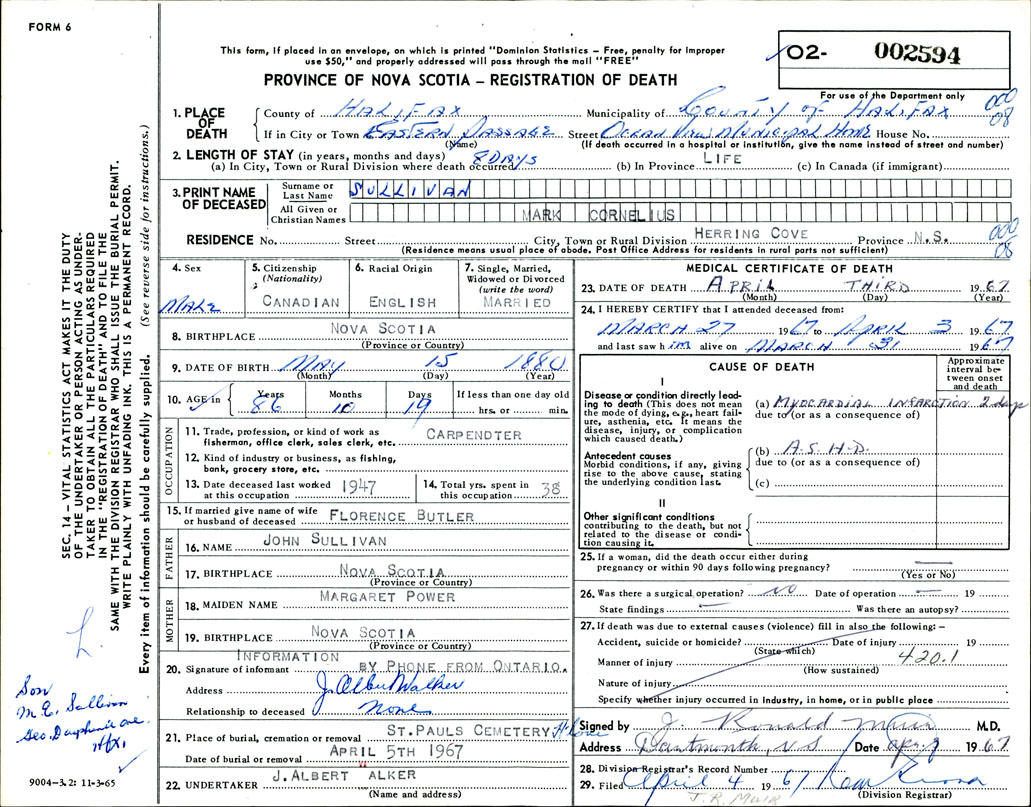 FORM 6
This form, if placed in an envelope, on which is printed "Dominion Statistics – Free, penalty for improper
use $50," and properly addressed will pass through the mail "FREE"
O2- 002594
PROVINCE OF NOVA SCOTIA – REGISTRATION OF DEATH
For use of the Department only
1. PLACE OF DEATH
County of HALIFAX Municipality of COUNTY OF HALIFAX 000 08
If in City or Town EASTERN PASSAGE Street OCEAN VIEW MUNICIPAL HOME House No.
(Name) (If death occurred in a hospital or institution, give the name instead of street and number)
2. LENGTH OF STAY (in years, months and days)
(a) In City, Town or Rural Division where death occurred 8 DAYS (b) In Province LIFE (c) In Canada (if immigrant)
3. PRINT NAME OF DECEASED
Surname or Last Name SULLIVAN
All Given or Christian Names MARK CORNELIUS
RESIDENCE No. Street City, Town or Rural Division HERRING COVE Province N.S. 000 08
(Residence means usual place of abode. Post Office Address for residents in rural parts not sufficient)
4. Sex MALE
5. Citizenship (Nationality) CANADIAN
6. Racial Origin ENGLISH
7. Single, Married, Widowed or Divorced (write the word) MARRIED
8. BIRTHPLACE NOVA SCOTIA
(Province or Country)
9. DATE OF BIRTH MAY 15 1880
(Month) (Day) (Year)
10. AGE in Years 86 Months 10 Days 19 If less than one day old hrs. or min.
OCCUPATION
11. Trade, profession, or kind of work as fisherman, office clerk, sales clerk, etc. CARPENDTER
12. Kind of industry or business, as fishing, bank, grocery store, etc.
13. Date deceased last worked at this occupation 1947
14. Total yrs. spent in this occupation 38
15. If married give name of wife or husband of deceased FLORENCE BUTLER
FATHER
16. NAME JOHN SULLIVAN
17. BIRTHPLACE NOVA SCOTIA
(Province or Country)
MOTHER
18. MAIDEN NAME MARGARET POWER
19. BIRTHPLACE NOVA SCOTIA
(Province or Country)
INFORMATION
20. Signature of informant BY PHONE FROM ONTARIO.
Address J. Albert Walker
Relationship to deceased none
21. Place of burial, cremation or removal ST. PAULS CEMETERY H Cove
Date of burial or removal APRIL 5TH 1967
22. UNDERTAKER J. ALBERT ALKER
(Name and address)
MEDICAL CERTIFICATE OF DEATH
23. DATE OF DEATH APRIL THIRD 1967
(Month) (Day) (Year)
24. I HEREBY CERTIFY that I attended deceased from:
MARCH 27 1967 to APRIL 3 1967
and last saw h im alive on MARCH 31 1967
CAUSE OF DEATH
Approximate interval between onset and death
I
Disease or condition directly leading to death (This does not mean the mode of dying, e.g., heart failure, asthenia, etc. It means the disease, injury, or complication which caused death.)
(a) MYOCARDIAL INFARCTION 2 days
due to (or as a consequence of)
Antecedent causes
Morbid conditions, if any, giving rise to the above cause, stating the underlying condition last.
(b) A.S.H.D.
due to (or as a consequence of)
(c)
II
Other significant conditions
contributing to the death, but not related to the disease or condition causing it.
25. If a woman, did the death occur either during pregnancy or within 90 days following pregnancy? —
(Yes or No)
26. Was there a surgical operation? NO Date of operation — 19
State findings — Was there an autopsy?
27. If death was due to external causes (violence) fill in also the following: –
Accident, suicide or homicide? Date of injury 19
(State which)
Manner of injury 420.1
(How sustained)
Nature of injury
Specify whether injury occurred in industry, in home, or in public place
Signed by J. Ronald Muir M.D.
Address Dartmouth, N S Date Apr 1967
28. Division Registrar's Record Number
29. Filed April 4 1967
J. R. Muir (Division Registrar)
SEC. 14 – VITAL STATISTICS ACT MAKES IT THE DUTY
OF THE UNDERTAKER OR PERSON ACTING AS UNDER-
TAKER TO OBTAIN ALL THE PARTICULARS REQUIRED
IN THE "REGISTRATION OF DEATH" AND TO FILE THE
SAME WITH THE DIVISION REGISTRAR WHO SHALL ISSUE THE BURIAL PERMIT.
WRITE PLAINLY WITH UNFADING INK. THIS IS A PERMANENT RECORD.
Every item of information should be carefully supplied. (See reverse side for instructions.)
L.
Son
M. E. Sullivan
Geo. Dauphinee ave.
Hfx,
9004-3.2: 11-3-65